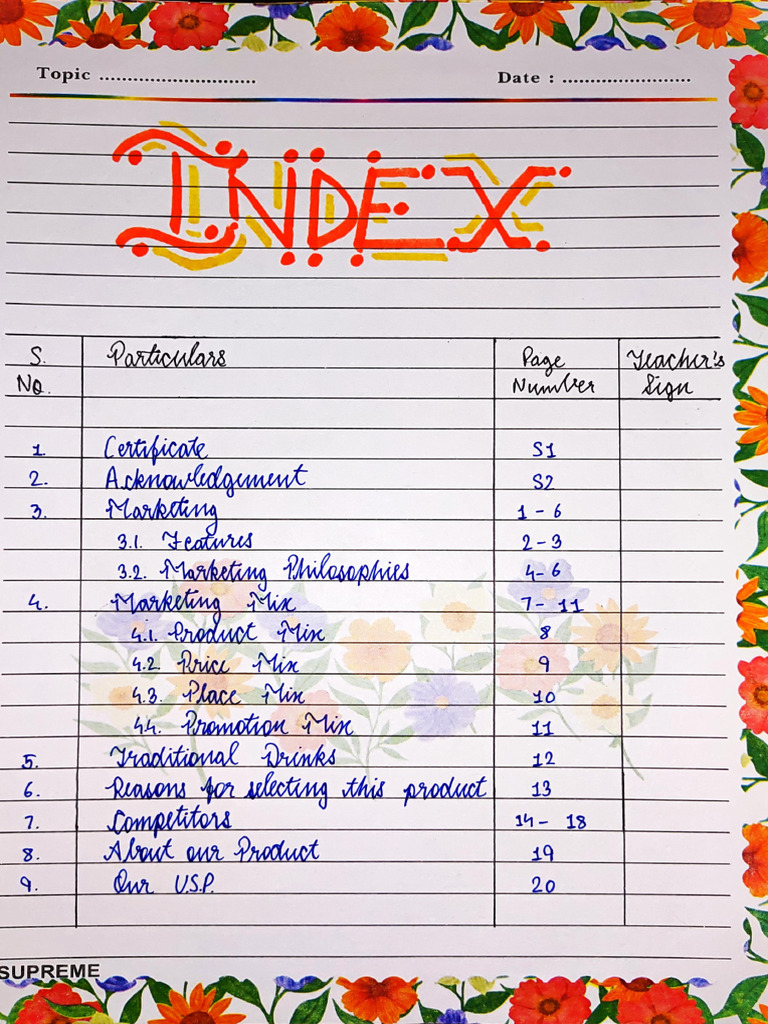 Topic ...........................
Date : ......................
INDEX
S. No. Particulars Page Number Teacher's Sign
1. Certificate S1
2. Acknowledgement S2
3. Marketing 1-6
3.1. Features 2-3
3.2. Marketing Philosophies 4-6
4. Marketing Mix 7-11
4.1. Product Mix 8
4.2. Price Mix 9
4.3. Place Mix 10
4.4. Promotion Mix 11
5. Traditional Drinks 12
6. Reasons for selecting this product 13
7. Competitors 14-18
8. About our Product 19
9. Our U.S.P. 20
SUPREME